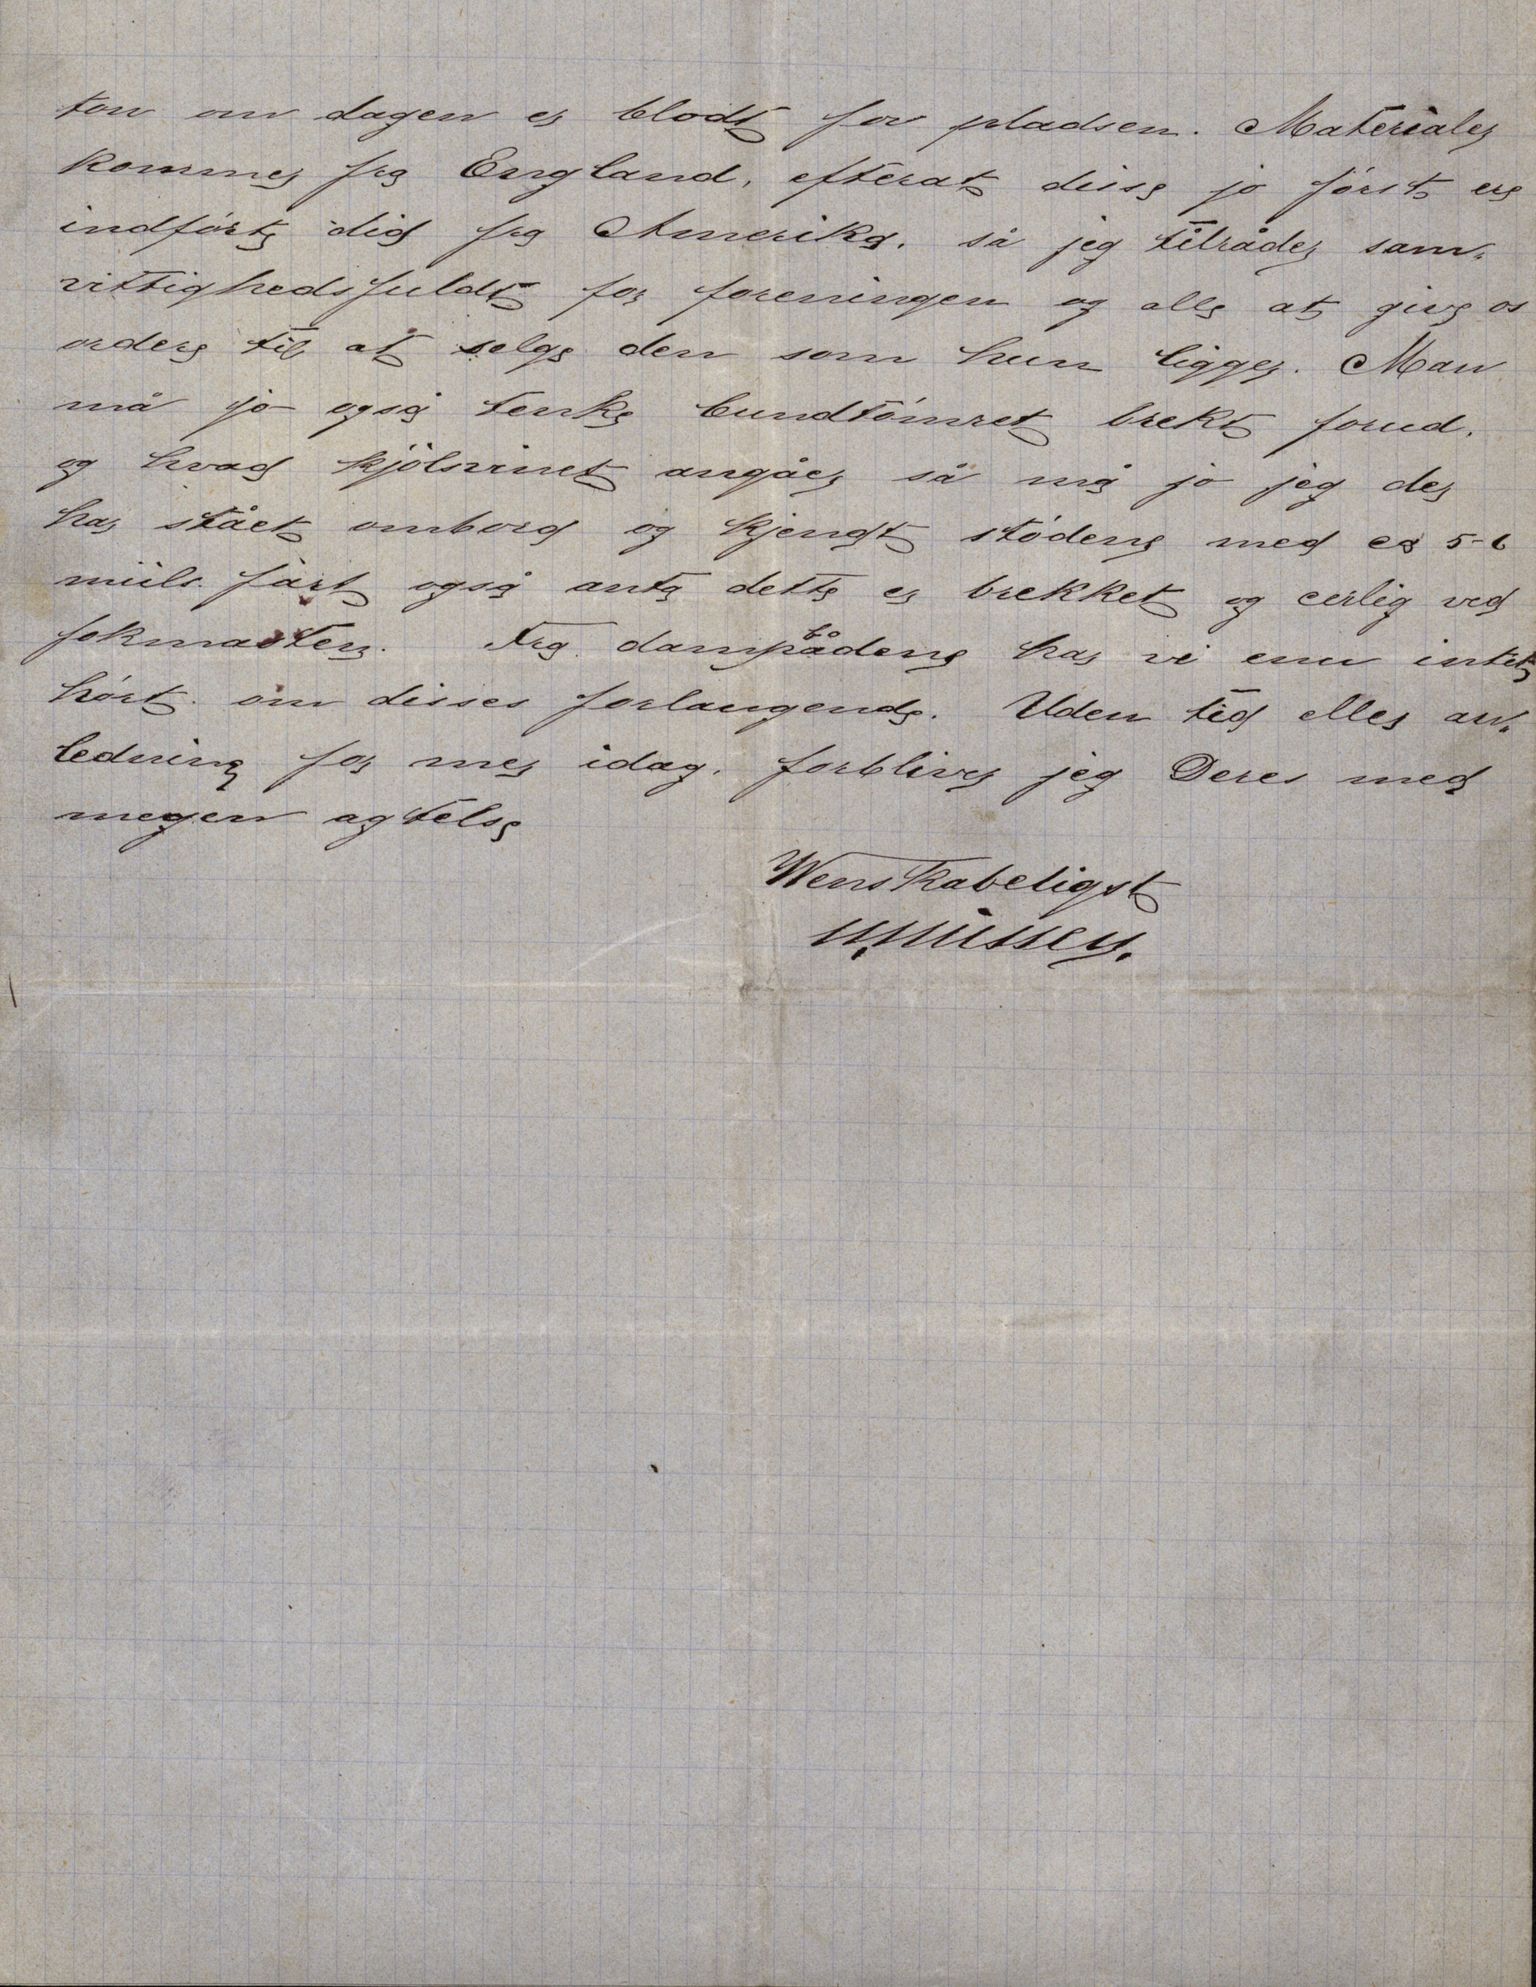 ton om dagen er blodt for pladsen. Materialer
kommer fra England, efterat disse jo först ere
indförte did fra Amerika, så jeg tilråder sam-
vittighedsfuldt for foreningen og alle at give os
orders til at selge den som hun ligger. Man
må jo også tenke bundtömret brekt forud,
og hvad kjölsvinet angåer så må jo jeg der
har stået ombord og kjendt stödene med ca 5-6
miils fart også anta dette er brekket og ved
fokmasten. Fra dampbådene har vi enu intet
hört om disses forlangende. Uden tid eller an-
ledning for mer idag, forbliver jeg Deres med
megen agtelse
Wenskabeligst